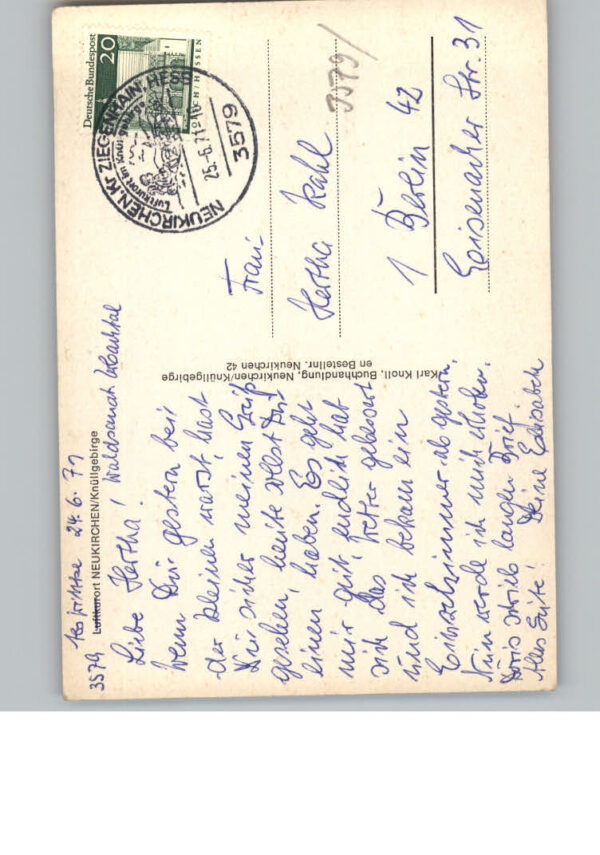 24.6.71
3579 Luftkurort NEUKIRCHEN/Knüllgebirge
Liebe Hertha!
Wenn Du gestern bei
der kleinen warst, hast
Du sicher meinen Gruß
gesehen, heute sollst Du
einen haben. Es geht
mir gut, endlich hat
sich das Wetter gebessert
und ich bekam ein
Einbettzimmer ab gestern.
Nun werde ich mich erholen.
Doris schrieb langen Brief.
Alles Gute! Deine Elisabeth
Karl Knoll, Buchhandlung, Neukirchen/Knüllgebirge
en Bestellnr. Neukirchen 42
Deutsche Bundespost
20
LORSCH/HESSEN
NEUKIRCHEN, Kr. ZIEGENHAIN, HESS
Luftkurort im Knüllgebirge
25.-6.71-16
3579
3579/
Frau
Hertha Kahl
1 Berlin 42
Eisenacher Str. 31